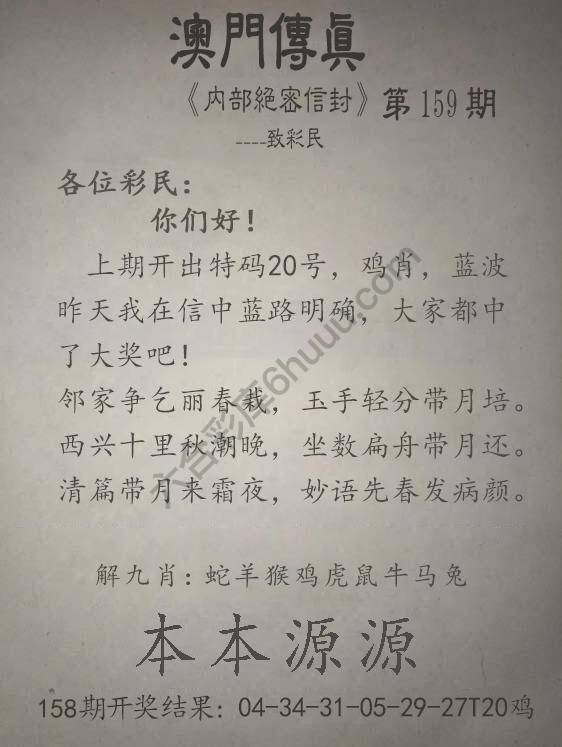 澳門傳真
《内部絕密信封》第159期
----致彩民
各位彩民：
你们好！
上期开出特码20号，鸡肖，蓝波
昨天我在信中蓝路明确，大家都中
了大奖吧！
邻家争乞丽春栽，玉手轻分带月培。
西兴十里秋潮晚，坐数扁舟带月还。
清篇带月来霜夜，妙语先春发病颜。
六合彩库6huuu.com
解九肖：蛇羊猴鸡虎鼠牛马兔
本本源源
158期开奖结果：04-34-31-05-29-27T20鸡